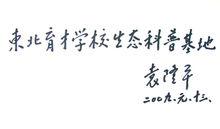 東北育才学校生态科普基地
袁隆平
二00九.元.十三.